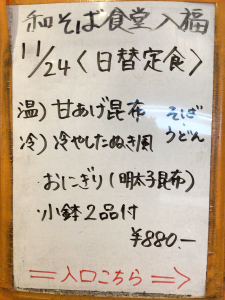 和そば食堂 入福
11/24〈日替定食〉
温)甘あげ昆布 そば
冷)冷やしたぬき風 うどん
おにぎり(明太子昆布)
小鉢2品付
¥880.-
⇒入口こちら⇒